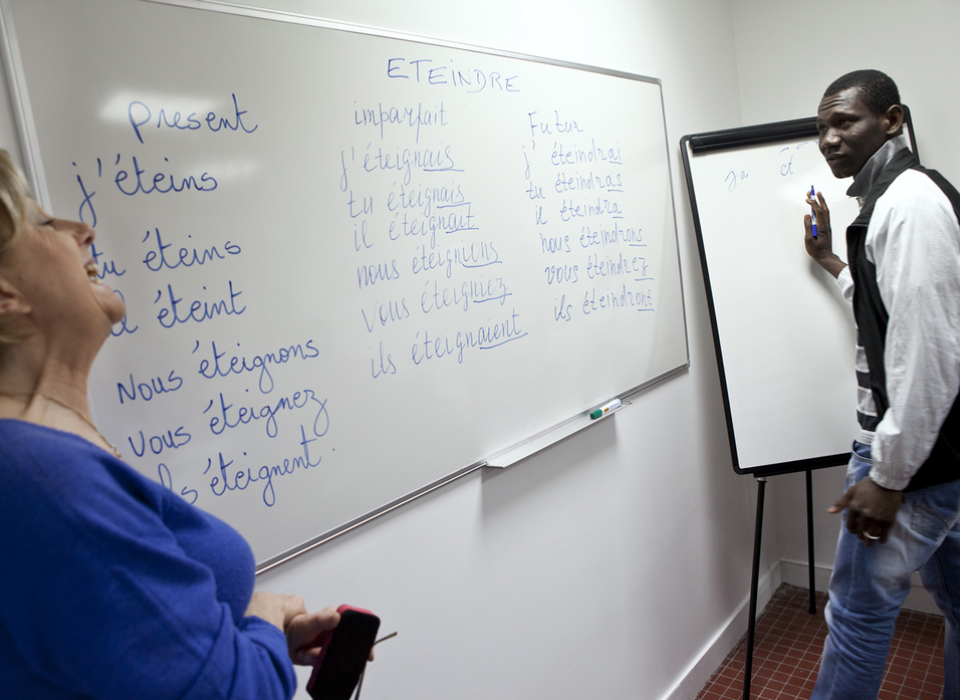 ETEINDRE
present
j'éteins
tu éteins
il éteint
Nous éteignons
vous éteignez
ils éteignent.
imparfait
j'éteignais
tu éteignais
il éteignait
nous éteignions
vous éteigniez
ils éteignaient
Futur
j'éteindrai
tu éteindras
il éteindra
nous éteindrons
vous éteindrez
ils éteindront